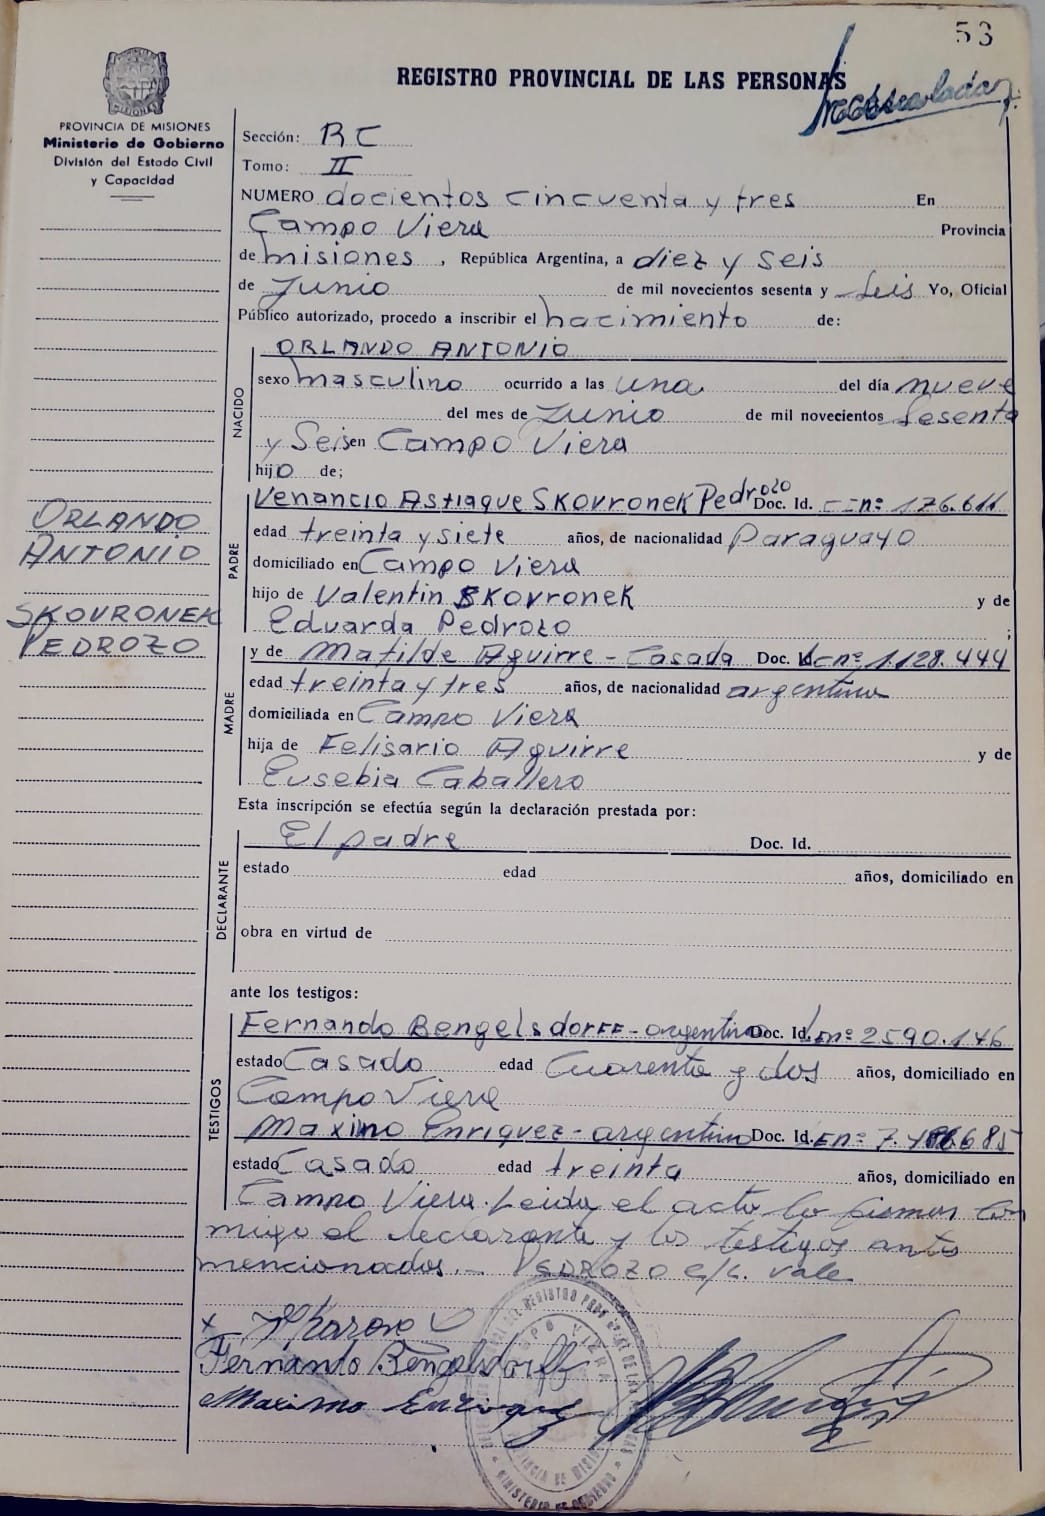 53
REGISTRO PROVINCIAL DE LAS PERSONAS
PROVINCIA DE MISIONES
Ministerio de Gobierno
División del Estado Civil
y Capacidad
Sección: RC
Tomo: II
NUMERO docientos cincuenta y tres En
Campo Viera Provincia
de misiones, República Argentina, a diez y seis
de Junio de mil novecientos sesenta y seis Yo, Oficial
Público autorizado, procedo a inscribir el nacimiento de:
NACIDO
ORLANDO ANTONIO
sexo masculino ocurrido a las una del día nueve
del mes de Junio de mil novecientos sesenta
y Seis en Campo Viera
hijo de;
ORLANDO
ANTONIO
SKOVRONEK
PEDROZO
PADRE
Venancio Astiaque SKOVRONEK Pedrozo Doc. Id. nº 176.611
edad treinta y siete años, de nacionalidad Paraguayo
domiciliado en Campo Viera
hijo de Valentin SKOVRONEK y de
Eduarda Pedrozo ;
MADRE
y de Matilde Aguirre - Casada Doc. Id. nº 1.128.444
edad treinta y tres años, de nacionalidad argentina
domiciliada en Campo Viera
hija de Felisario Aguirre y de
Eusebia Caballero
Esta inscripción se efectúa según la declaración prestada por:
DECLARANTE
El padre Doc. Id.
estado edad años, domiciliado en
obra en virtud de
ante los testigos:
TESTIGOS
Fernando Bengelsdorff - argentino Doc. Id. nº 2590.146
estado Casado edad Cuarenta y dos años, domiciliado en
Campo Viera
Maximo Enriquez - argentino Doc. Id. nº
estado Casado edad treinta años, domiciliado en
Campo Viera. Leida el acta la firman con
migo el declarante y los testigos antes
mencionados.- PEDROZO e/l. vale
Fernando Bengelsdorff
Maximo Enriquez
CAMPO VIERA
PROVINCIA DE MISIONES
MINISTERIO DE GOBIERNO